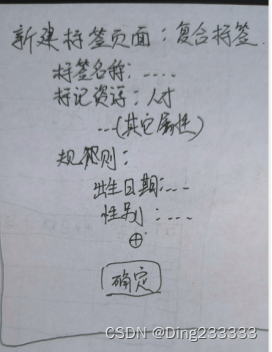 新建标签页面：复合标签
标签名称：....
标记资源：人才
...(其它属性)
规则：
出生日期：...
性别：....
⊕
确定
CSDN @Ding233333